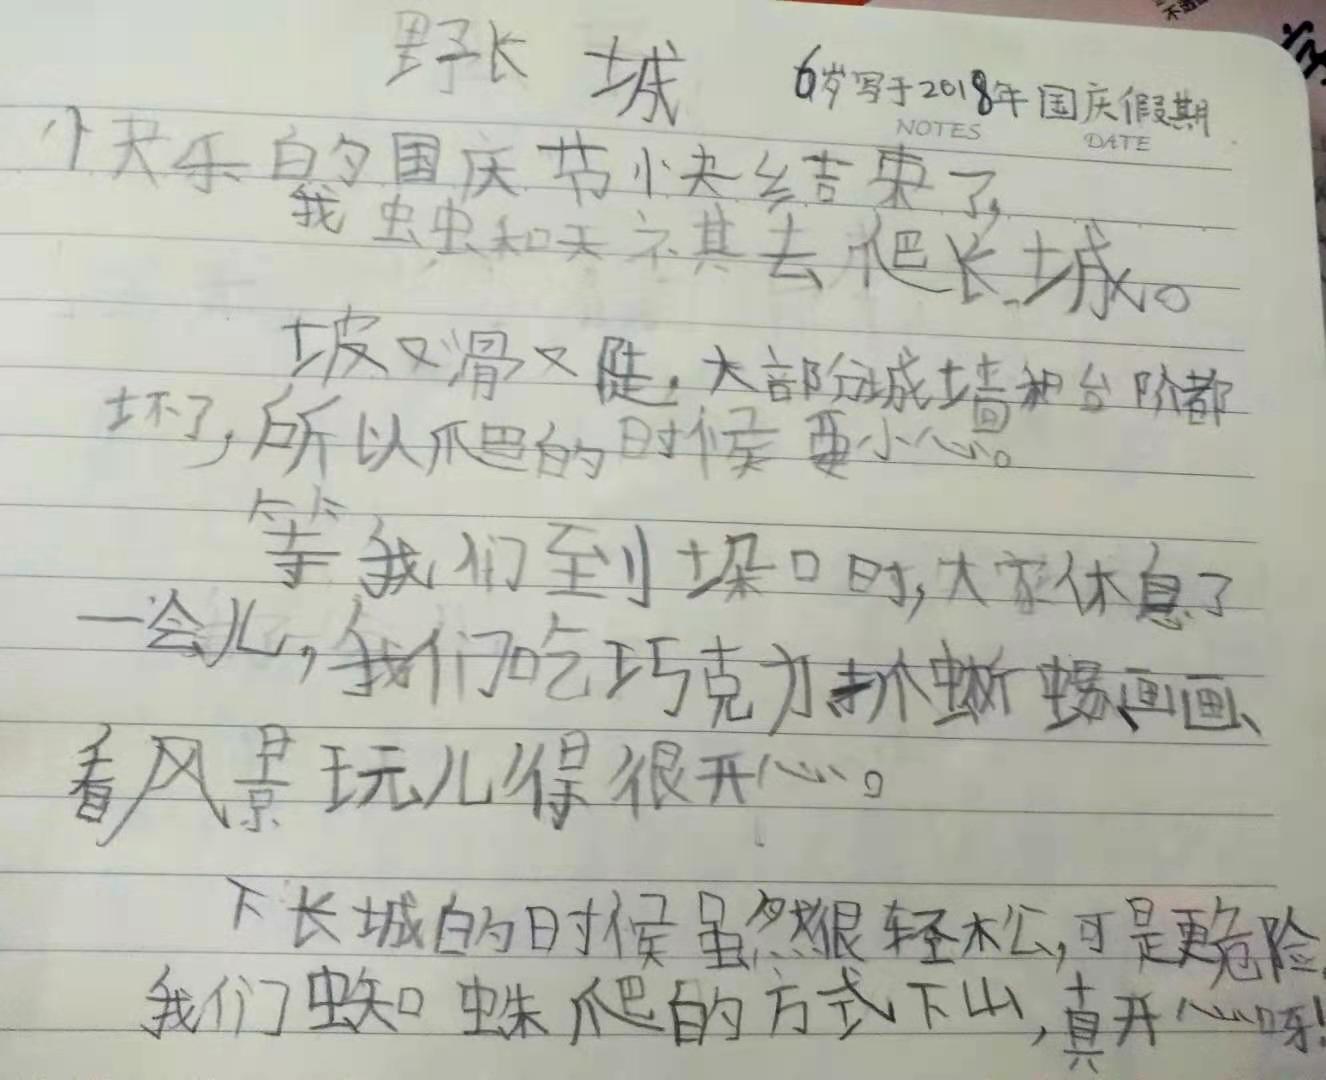 野长城
6岁写于2018年国庆假期
NOTES
DATE
快乐的国庆节快结束了,
我虫虫和天祺去爬长城。
坡又滑又陡,大部分城墙和台阶都
坏了,所以爬的时候要小心。
等我们到垛口时,大家休息了
一会儿,我们吃巧克力抓蜥蜴、画画、
看风景玩儿得很开心。
下长城的时候虽然很轻松,可是更危险,
我们蜘蛛爬的方式下山,真开心呀!